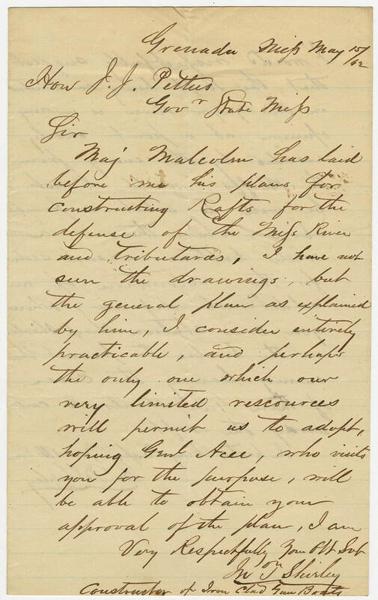 Grenada Miss May 15/62
Hon J. J. Pettus
Govr State Miss
Sir
Maj Malcolm has laid
before me his plans for
constructing Rafts for the
defense of the Miss River
and tributaries, I have not
seen the drawings, but
the general plan as explained
by him, I consider entirely
practicable, and perhaps
the only one which our
very limited rescources
will permit us to adopt,
hoping Genl Acee, who visits
you for the purpose, will
be able to obtain your
approval of the plan, I am
Very Respectfully Your Obt Svt
Jno T Shirley
Constructor of Iron Clad Gun Boats